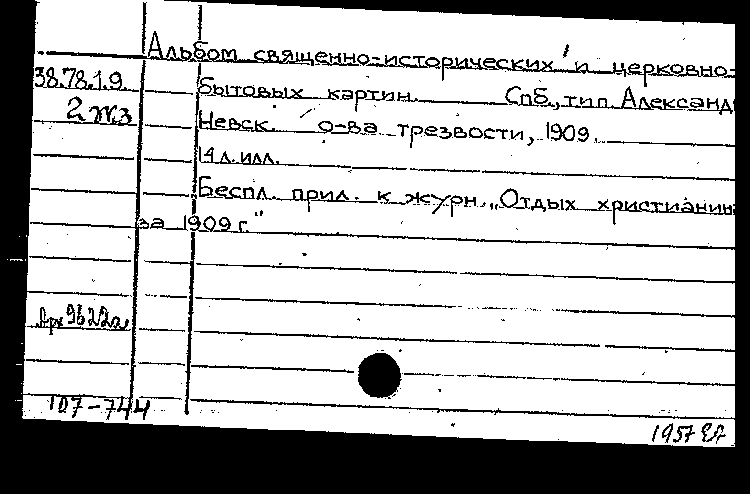 Альбом священно-исторических и церковно-
38.78.1.9 бытовых картин. Спб., тип. Александ
2жз Невск. о-ва трезвости, 1909.
14 л. илл.
Беспл. прил. к журн. „Отдых христианин
за 1909 г."
9622а
107-744
1957